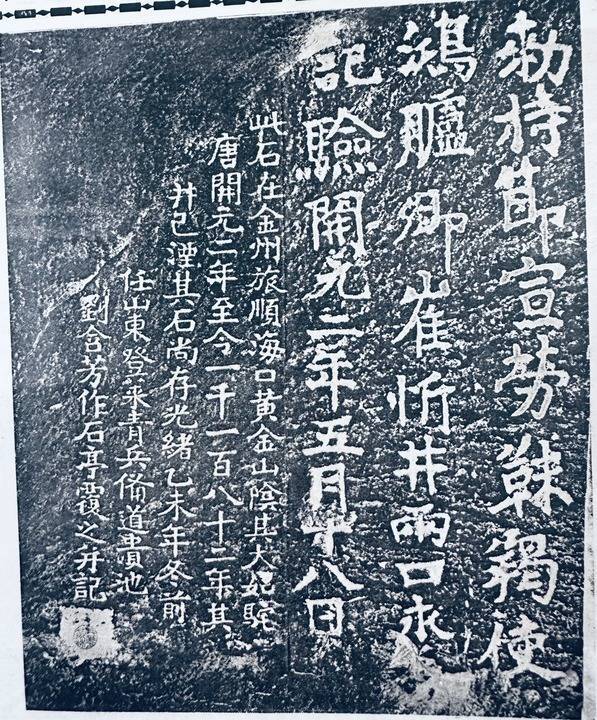 勅持節宣勞靺羯使
鴻臚卿崔忻井兩口永
記驗開元二年五月十八日
此石在金州旅順海口黃金山陰其大如駝
唐開元二年至今一千一百八十二年其
井已湮其石尚存光緒乙未年冬前
任山東登萊青兵俻道貴池
劉含芳作石亭覆之并記